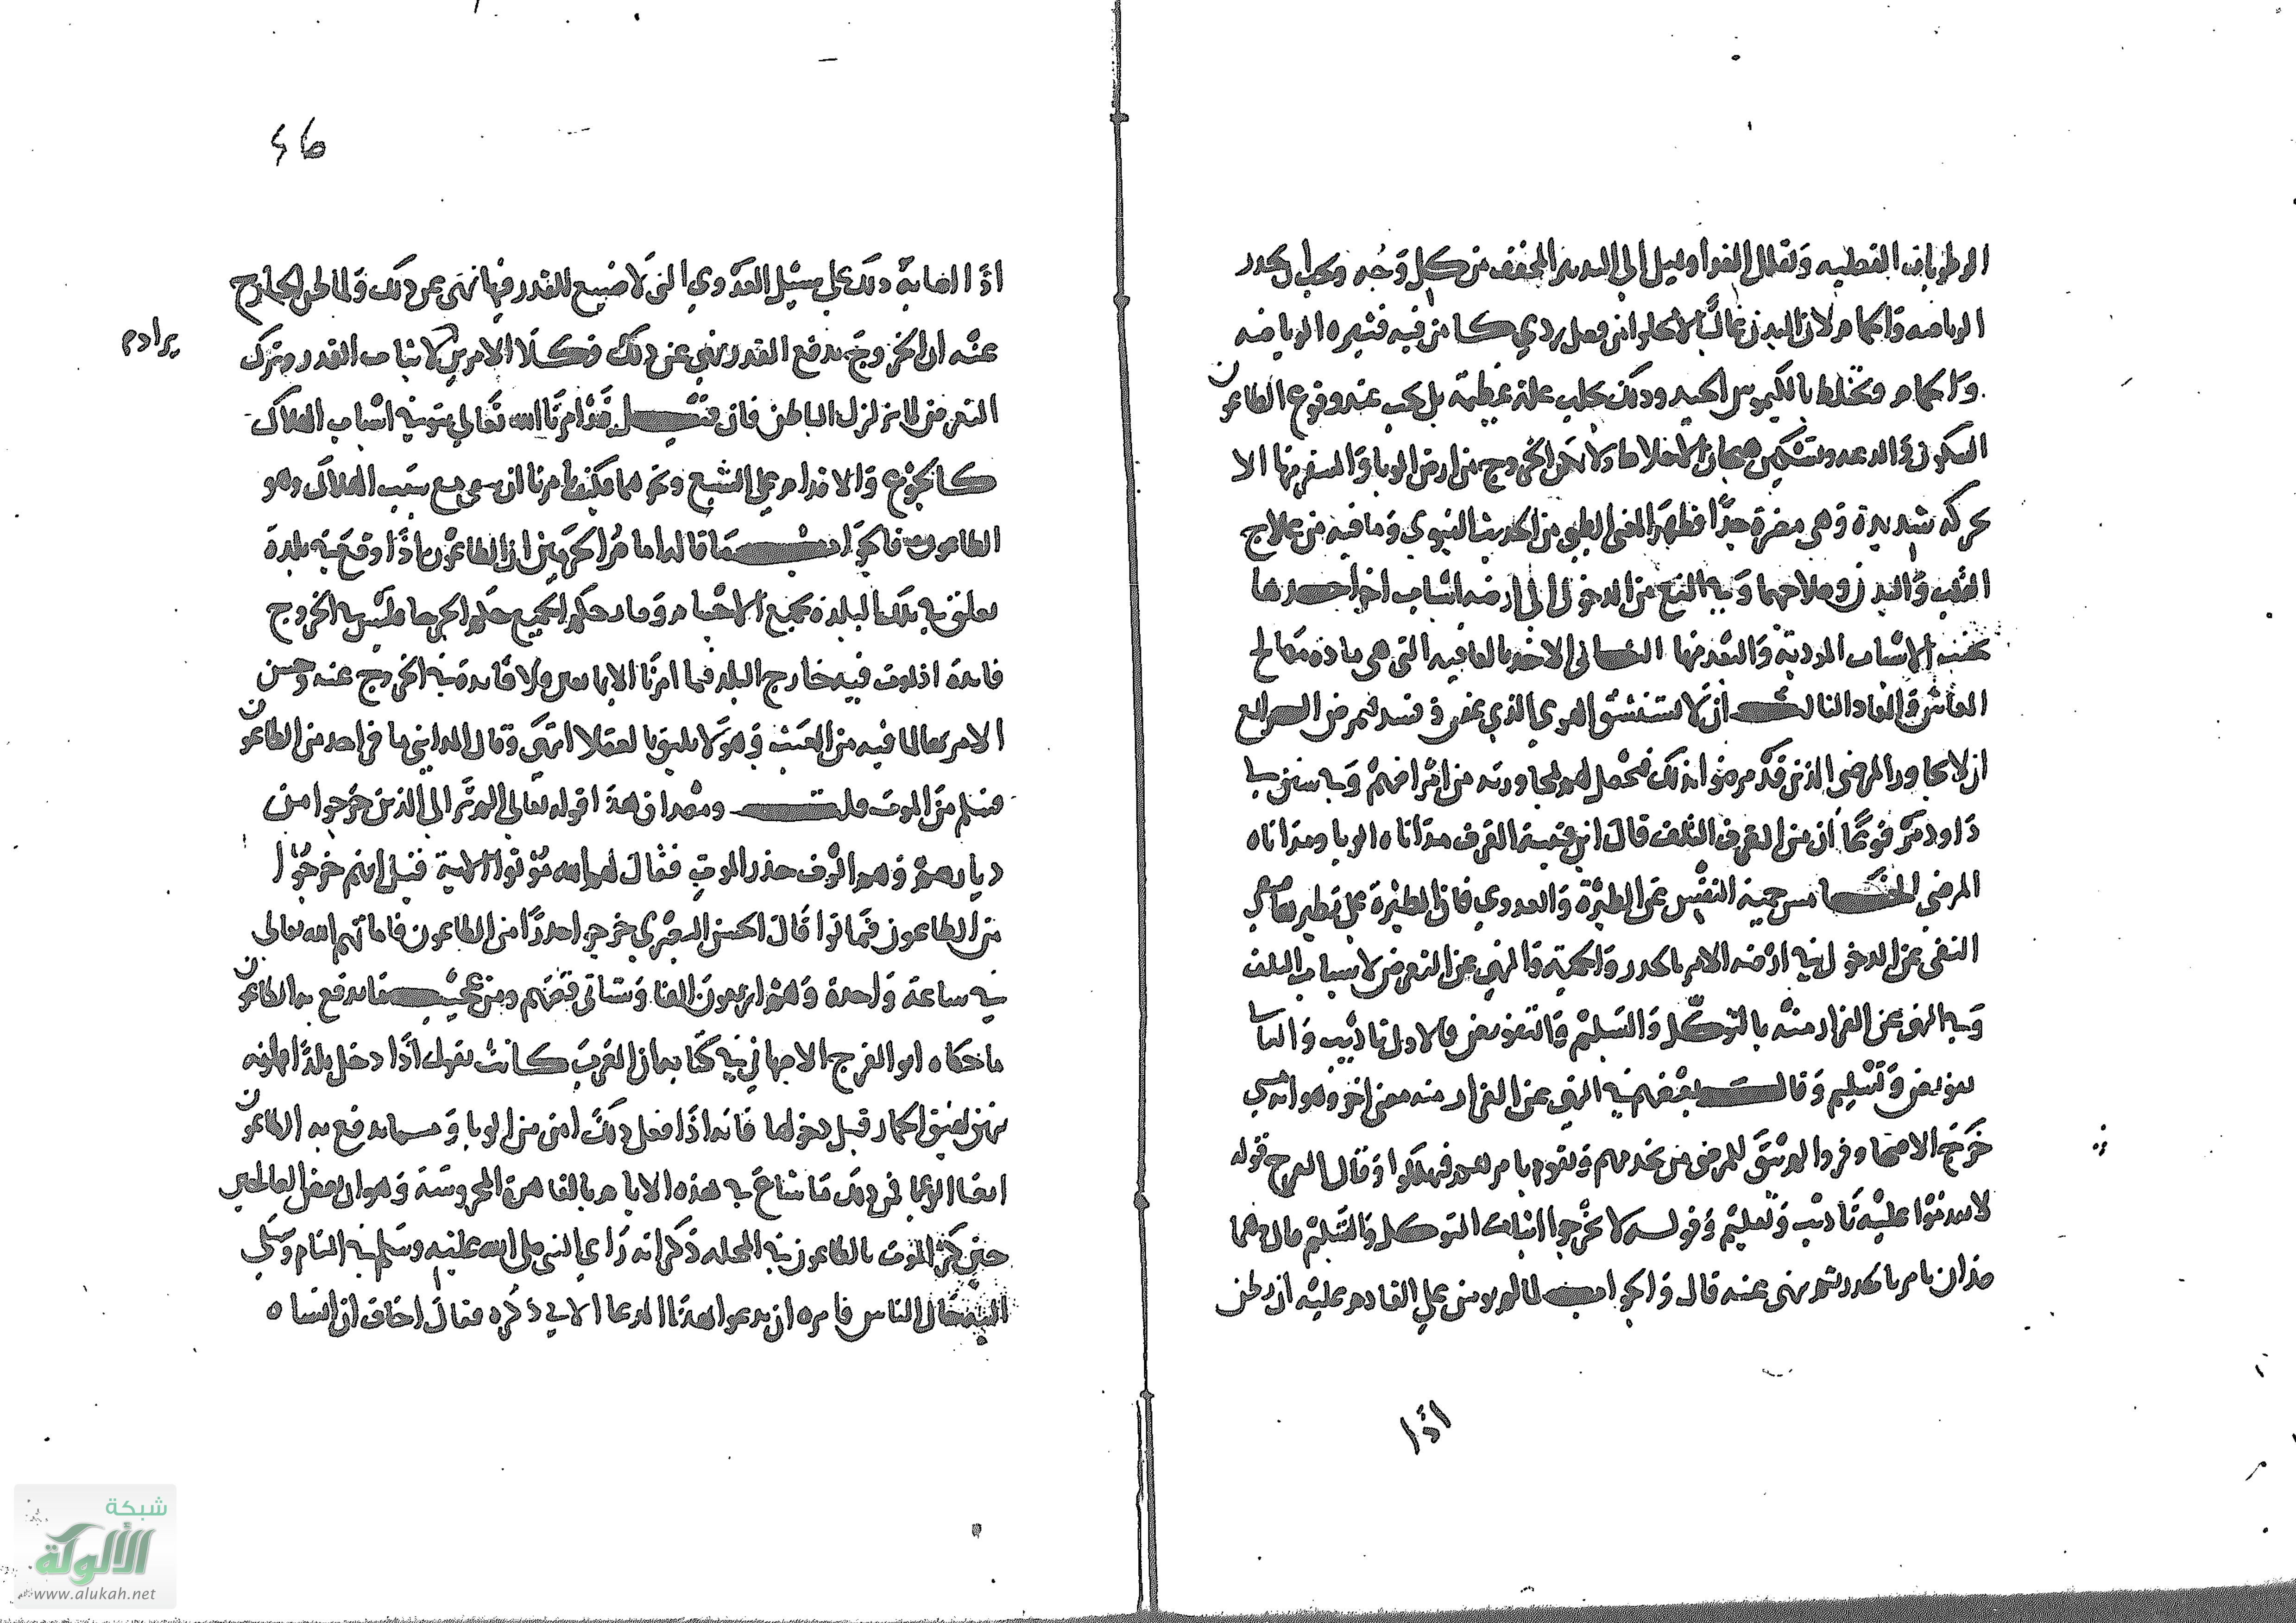 الرطوبات الفضليه وتقليل الغذا ويميل الي التدبير المجفف من كل وجه ويجب ان يحذر
الرياضه والحمام لان البدن غالبا لا يخلوا من فضل ردي كامن فيه فتثيره الرياضه
والحمام ويختلط بالكيموس الجيد وذلك يجلب علة عظيمة بل يجب عند وقوع الطاعون
السكون والدعه وتسكين هيجان الاخلاط ولا يمكن الخروج من ارض الوبا والسفر منها الا
بحركة شديدة وهي مضرة جدا فظهر المعنى الطبي من الحديث النبوي وما فيه من علاج
القلب والبدن وصلاحهما وفي المنع من الدخول الى ارضه اسباب اخر احدها
تجنب الاسباب الموذية والبعد منها الثاني الاخذ بالعافيه التي هي مادة مصالح
المعاش والمعاد الثالث ان لا تستنشق الهوي الذي عفن وفسد فيمرض الرابع
ان لا يجاور المرضي الذين قد مرضوا بذلك فيحصل لهم بمجاورته من امراضهم وفي سنن ابي
داود مرفوعا ان من القرف التلف قال ابن قتيبة القرف مداناه الوبا ومداناه
المرضى الخامس حمية النفس عن الطيرة والعدوي فان الطيرة على من تطير بها ففي
النهي عن الدخول في ارضه الامر بالحذر والحمية والنهي عن التعرض لاسباب التلف
وفي النهي عن الفرار منه بالتوكل والتسليم والتفويض فالاول تاديب والثاني
تفويض وتسليم وقال بعضهم في النهي عن الفرار منه معني اخر وهو انه متي
خرج الاصحاء فروا لم يبق للمرضى من يخدمهم ويقوم بامرهم فهلكوا وقال قوله
لا تقدموا عليه تاديب وتعليم وقوله لا تخرجوا اثبات التوكل والتسليم
ان يامر بالحذر ثم ينهى عنه قال والجواب لما لم يومن على القادم عليه ان يظن
اذا
46
اذا اصابه ذلك على سبيل العدوي التي لا صنيع للقدر فيها نهى عن ذلك ولما ظن الخارج
عنه ان الخروج يدفع القدر نهي عن ذلك فكلا الامرين لاثبات القدر وترك
يرادم
التعرض لما يزلزل الباطن فان قيل قد امرنا الله تعالي بتوقي اسباب الهلاك
كالجوع والاقدام على السبع ونحوهما فكيف امرنا ان مع سبب الهلاك وهو
الطاعون فالجواب ما قاله امام الحرمين ان الطاعون اذا وقع في بلدة
تعلق في تلك البلدة بجميع الاجسام وصار حكم الجميع حكم المرضى فليس في الخروج
فايدة اذ يموت فيه خارج البلد فما امرنا الا ولا فايدة في الخروج عنه وحسن
الامر لما فيه من العبث وهو لا يليق بالعقلا انتهى وقال المدايني ما فر احد من الطاعون
فسلم من الموت قلت ومصداق هذا قوله تعالي الم تر الي الذين خرجوا من
ديارهم وهم الوف حذر الموت فقال لهم الله موتوا الاية قيل انهم خرجوا
من الطاعون فماتوا قال الحسن البصري خرجوا حذرا من الطاعون فاماتهم الله تعالي
في ساعة واحدة وهم اربعون الفا وستاتي قصتهم ومن عجيب ما يدفع به الطاعون
ما حكاه ابو الفرج الاصبهاني في كتابه ان العرب كانت تقول اذا دخل بلدا
نهق نهيق الحمار قبل دخولها فانه اذا فعل ذلك امن من الوبا ومما يدفع به الطاعون
ايضا الدعا فمن ذلك ما شاع في هذه الايام بالقاهرة المحروسة وهو ان بعض الصالحين
حين كثر الموت بالطاعون في المحله ذكر انه راي النبي صلى الله عليه وسلم في المنام وشكى
اليه حال الناس فامره ان يدعوا بهذا الدعا الاتي ذكره فقال اخاف ان انساه
شبكة
الألوكة
www.alukah.net